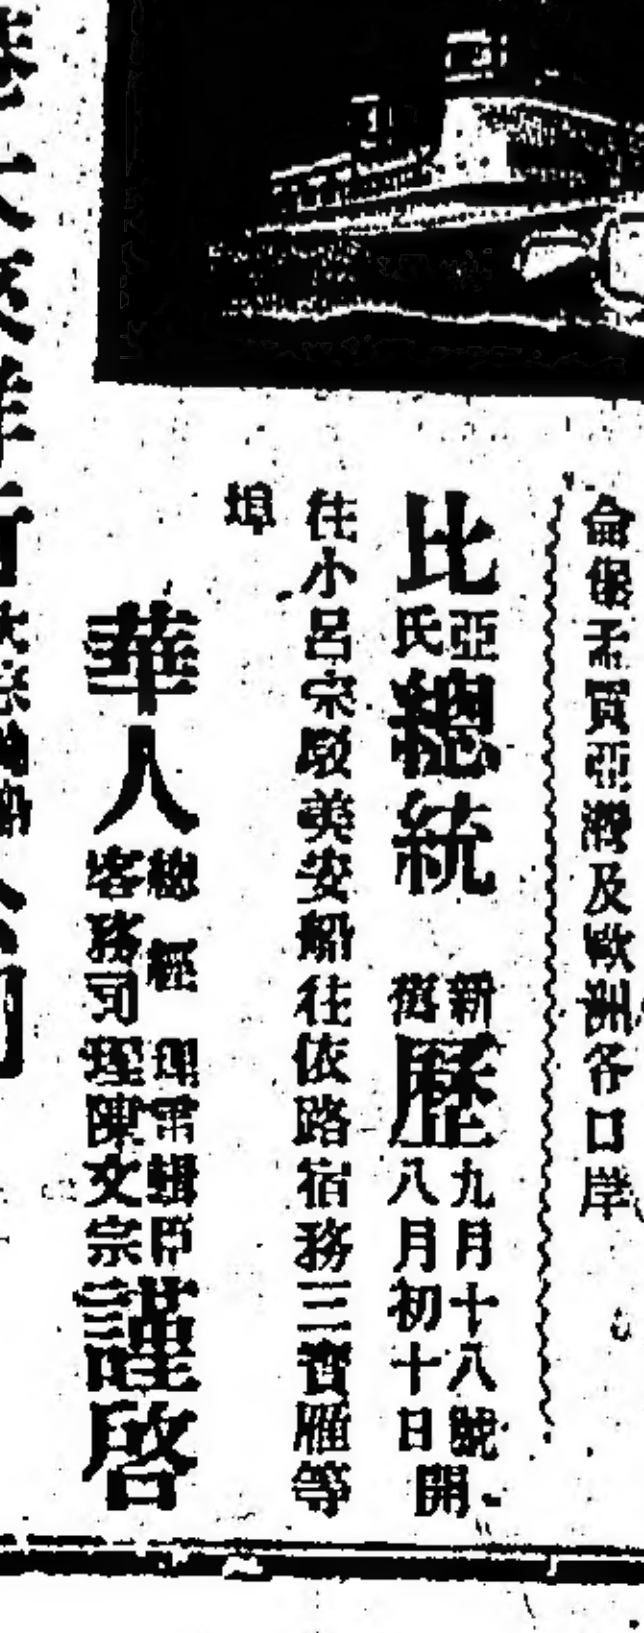 孟買亞灣及歐洲各口岸
比亞氏總統 新舊歷九月十八號八月初十日開
往小呂宋駁美安船往依路宿務三寶雁等
埠
華人總經理雷輯臣客務司理陳文宗謹啓